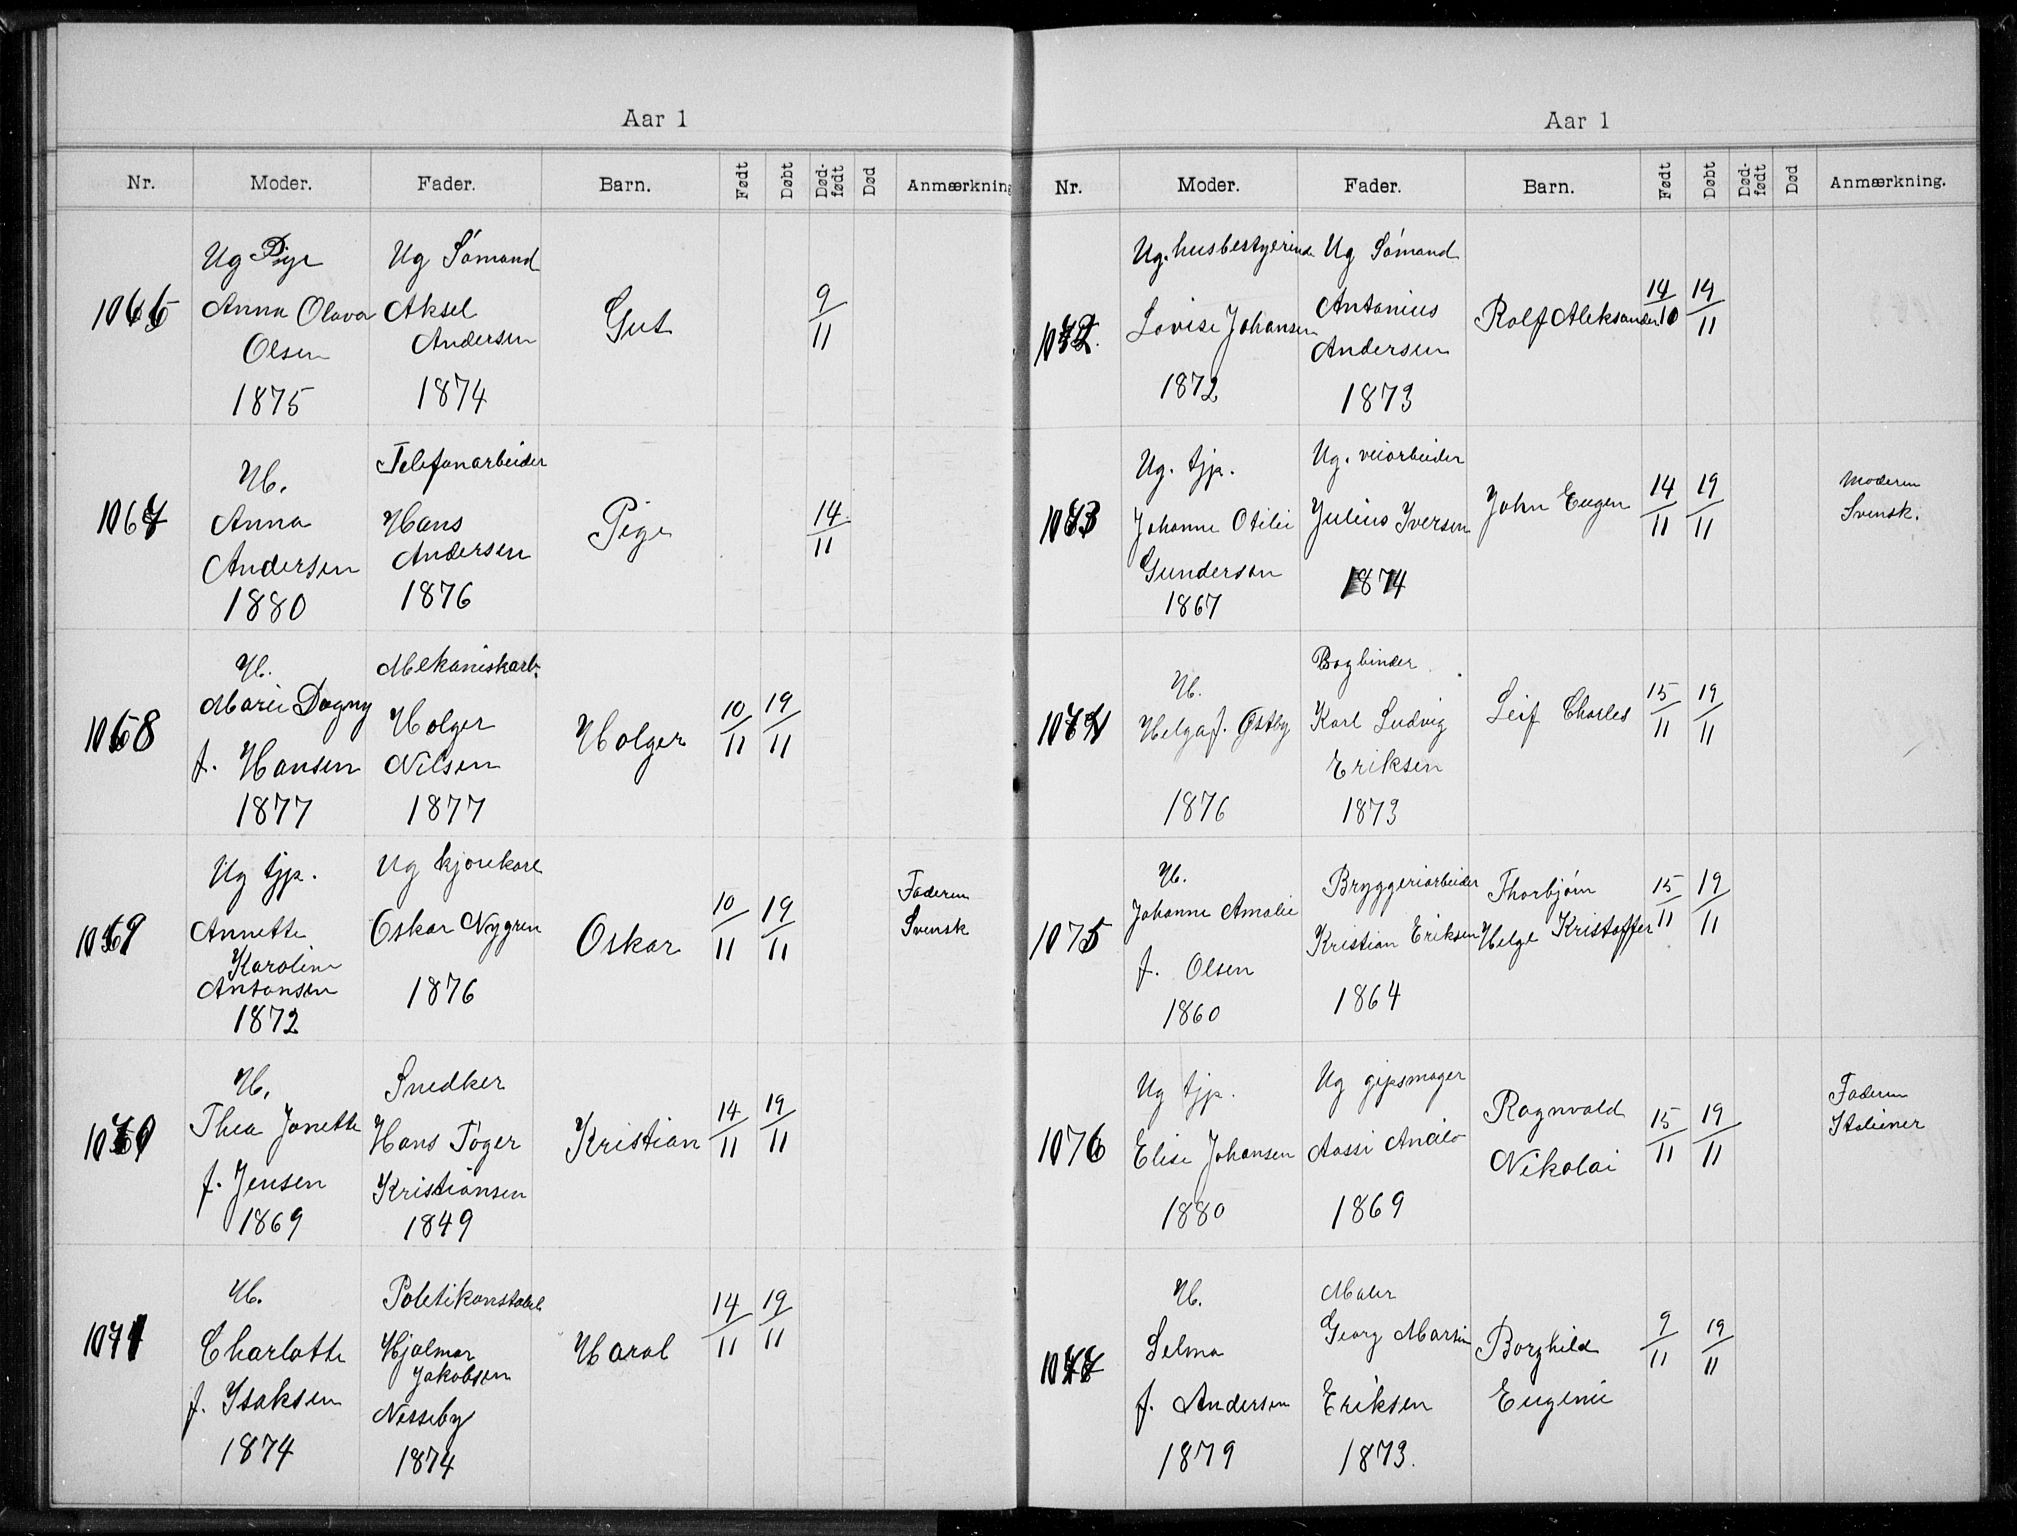 Aar 1
Nr. Moder. Fader. Barn. Født Døbt Død-født Død Anmærkning
1066
Ug Pige
Anna Olava
Olsen
1875
Ug Sömand
Aksel
Andersen
1874
Gut
9/11
1067
H.
Anna
Andersen
1880
Telefonarbeider
Hans
Andersen
1876
Pige
14/11
1068
H.
Marie Dagny
f. Hansen
1877
Mekaniskarb.
Holger
Nilsen
1877
Holger
10/11 19/11
1069
Ug tjp.
Annette
Karoline
Antonsen
1872
Ug kjörekarl
Oskar Nygren
1876
Oskar
10/11 19/11
Faderen
Svensk
1070
H.
Thea Janette
f. Jensen
1869
Snedker
Hans Töger
Kristiansen
1849
Kristian
14/11 19/11
1071
H.
Charlotte
f. Isaksen
1874
Politikonstabel
Hjalmar
Jakobsen
Nesseby
1874
Haral
14/11 19/11
Aar 1
Nr. Moder. Fader. Barn. Født Døbt Død-født Død Anmærkning.
1072.
Ug. husbestyerinde
Lovise Johansen
1872
Ug Sömand
Antonius
Andersen
1873
Rolf Aleksander
14/10 19/11
1073
Ug. tjp.
Johanne Otilie
Gunderson
1867
Ug. veiarbeider
Julius Iversen
1874
John Eugen
14/11 19/11
Moderen
Svensk.
1074
H.
Helga f. Østby
1876
Bogbinder
Karl Ludvig
Eriksen
1873
Leif Charles
15/11 19/11
1075
H.
Johanne Amalie
f. Olsen
1860
Bryggeriarbeider
Kristian Eriksen
1864
Thorbjörn
Helge Kristoffer
15/11 19/11
1076
Ug tjp.
Elise Johansen
1880
Ug gipsmager
1869
Ragnvald
Nikolai
15/11 19/11
Faderen
Italiener
1077
H.
Selma
f. Andersen
1879
Maler
Georg Martin
Eriksen
1873.
Borghild
Eugenie
9/11 19/11